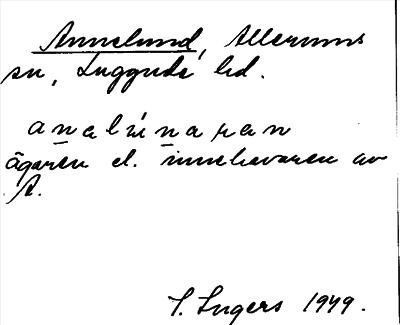 Annelund, Allerums
sn, Luggude hd.
analúnaran
ägaren el. innehavaren av
A.
I. Ingers 1949.